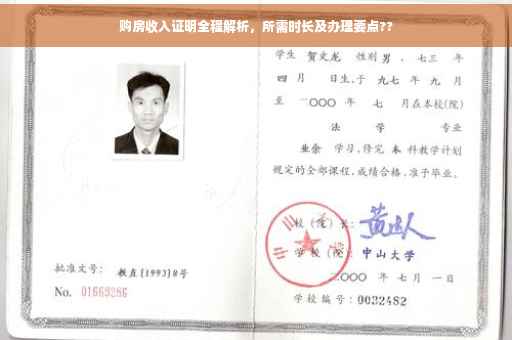 购房收入证明全程解析，所需时长及办理要点??
学生 贺文龙 性别 男 . 七三 年
四 月 日生,于 九七 年 九 月
至 二OOO 年 七 月在本校(院)
法 学 专业
业余 学习,修完 本 科教学计划
规定的全部课程,成绩合格,准予毕业。
校(院)长:
学校(院): 中山大学
二OOO 年 七 月 一 日
学校编号: 0032482
批准文号: 教直(1993)8号
No. 01669286